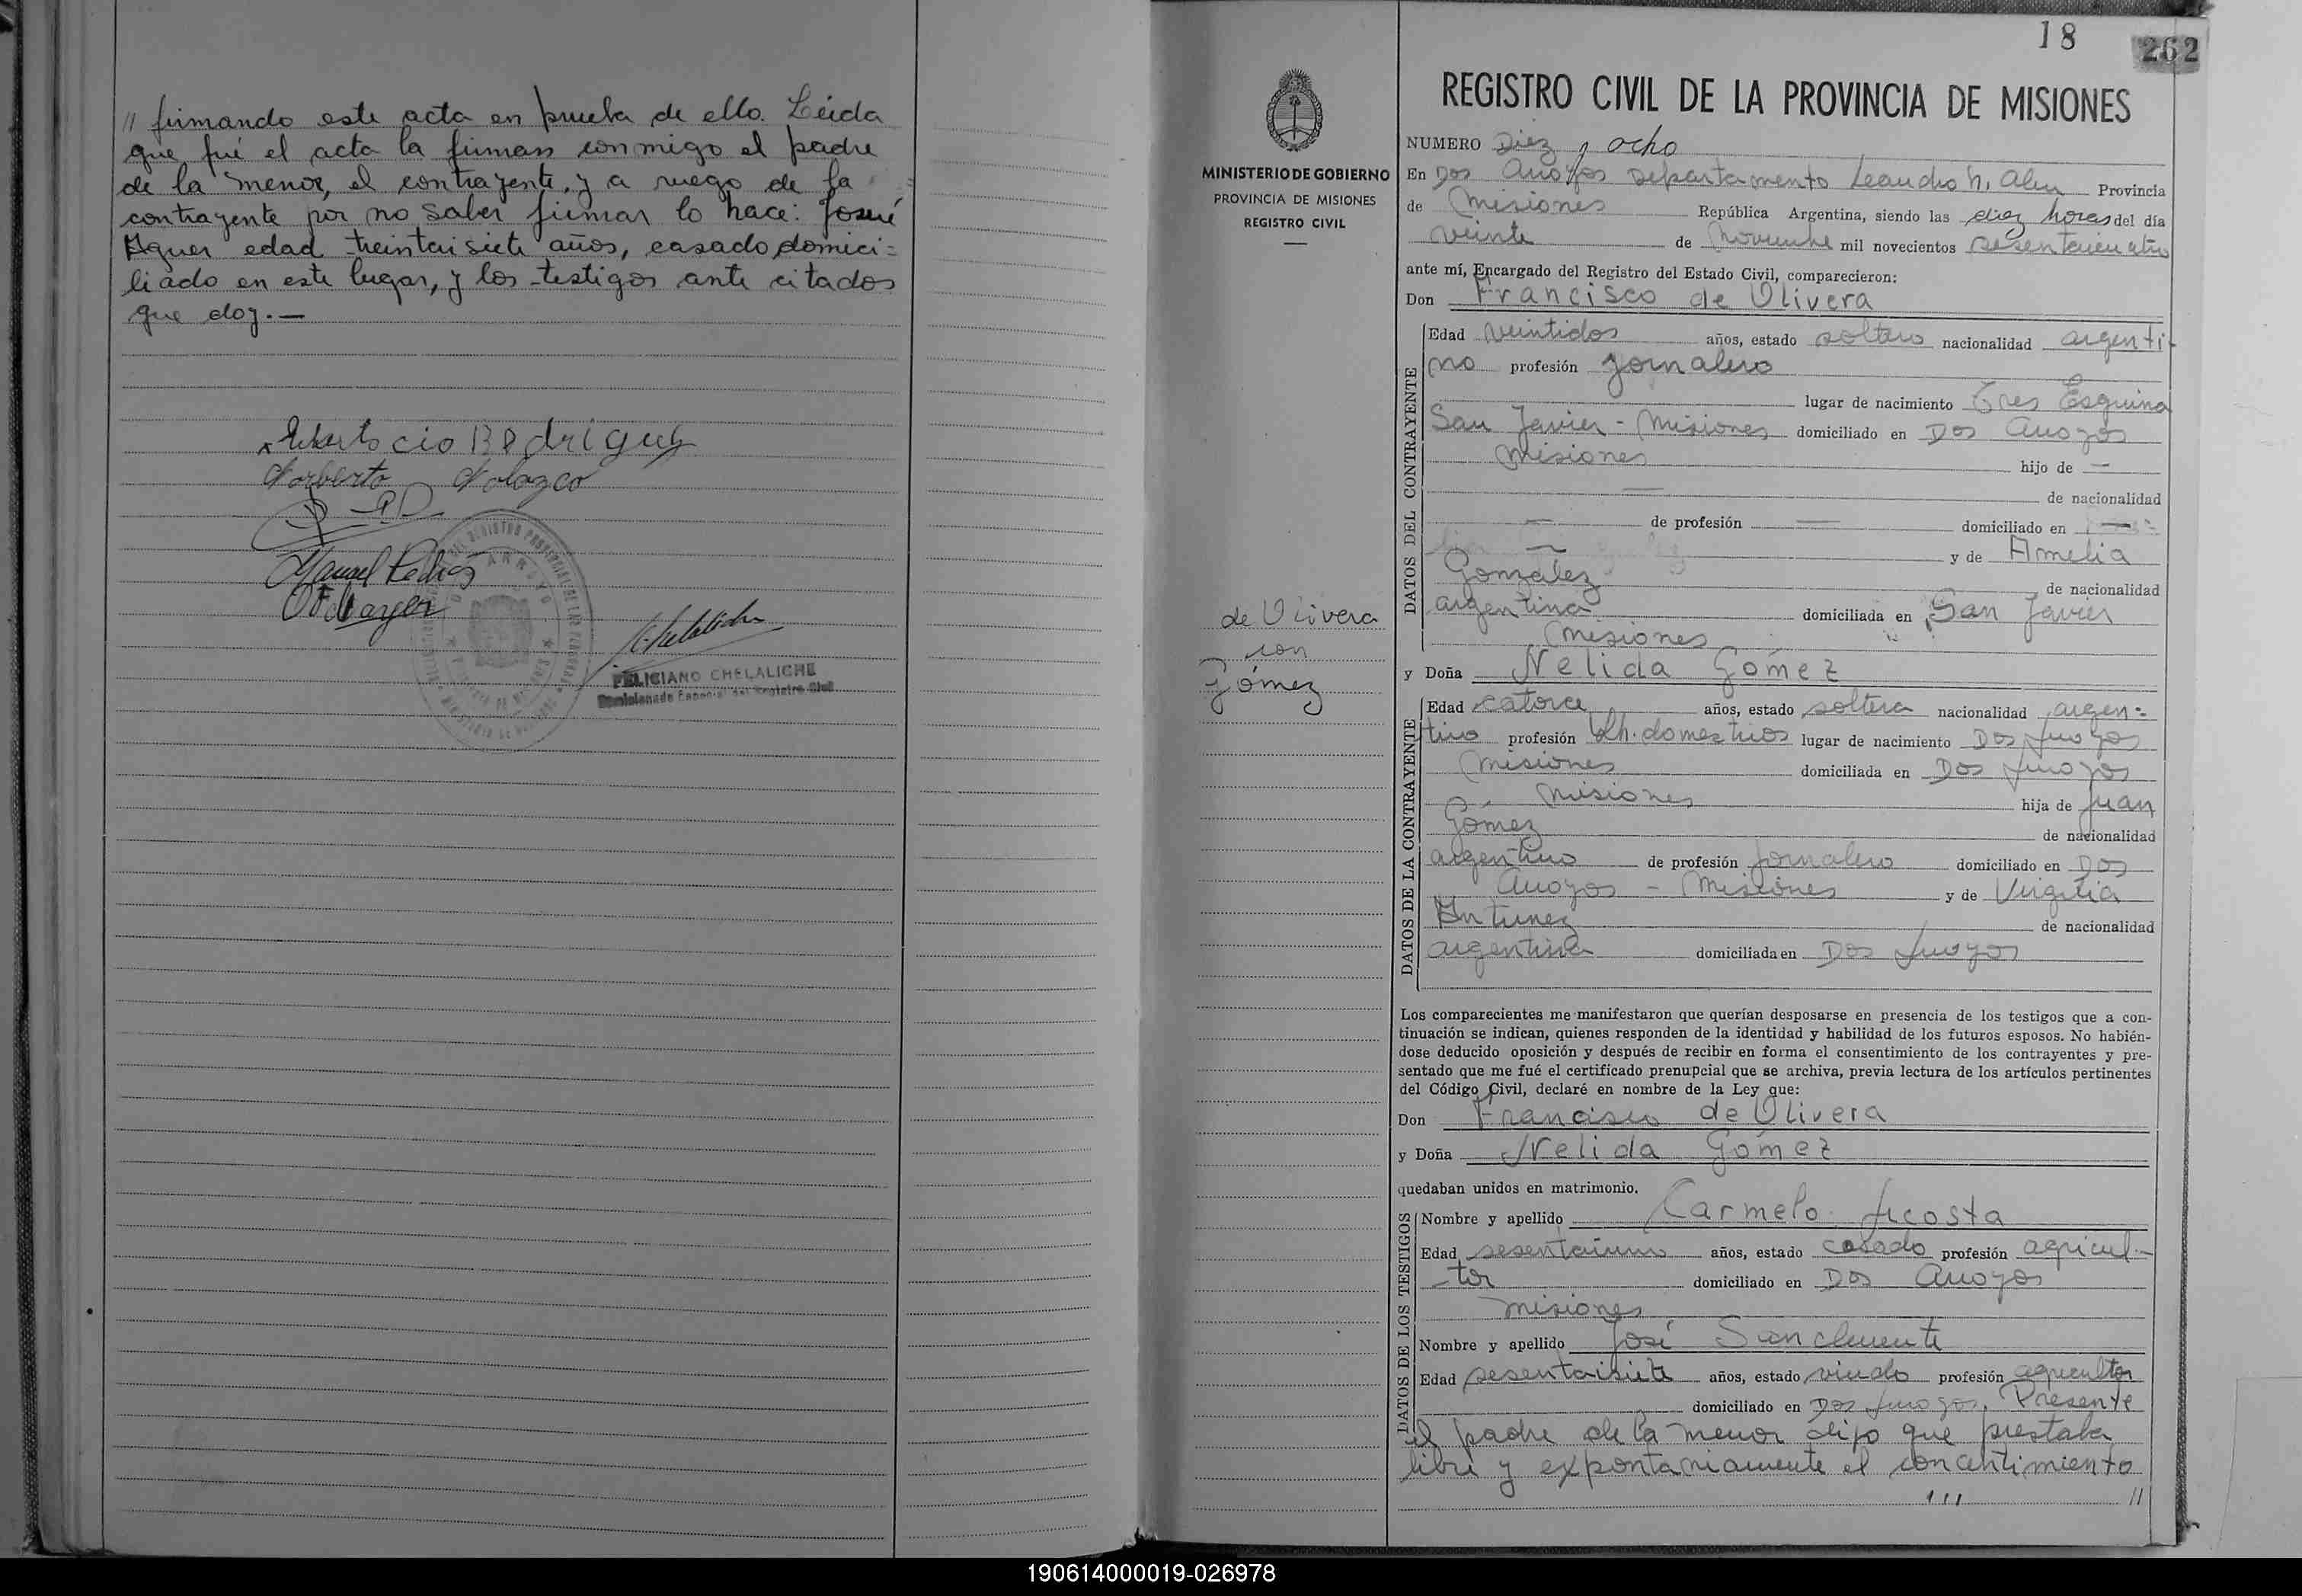 // firmando este acta en prueba de ello. Leida
que fué el acta la firman conmigo el padre
de la menor, el contrayente, y a ruego de la
contrayente por no saber firmar lo hace: Josué
edad treintaisiete años, casado, domici=
liado en este lugar, y los testigos ante citados
que doy.—
Norberto
Manuel
FELICIANO CHELALICHE
Comisionado Especial del Registro Civil
18
262
REGISTRO CIVIL DE LA PROVINCIA DE MISIONES
MINISTERIO DE GOBIERNO
PROVINCIA DE MISIONES
REGISTRO CIVIL
de Olivera
con
Gómez
NUMERO Diez y ocho
En Dos Arroyos Departamento Leandro N. Alem Provincia
de Misiones República Argentina, siendo las diez horas del día
veinte de Noviembre mil novecientos sesentaicuatro
ante mí, Encargado del Registro del Estado Civil, comparecieron:
Don Francisco de Olivera
DATOS DEL CONTRAYENTE
Edad veintidos años, estado soltero nacionalidad argenti-
no profesión Jornalero
lugar de nacimiento Tres Esquina
San Javier - Misiones domiciliado en Dos Arroyos
Misiones hijo de —
— de nacionalidad
— de profesión — domiciliado en —
— y de Amelia
González de nacionalidad
argentina domiciliada en San Javier
Misiones
y Doña Nelida Gómez
DATOS DE LA CONTRAYENTE
Edad catorce años, estado soltera nacionalidad argen=
tina profesión domesticos lugar de nacimiento Dos Arroyos
Misiones domiciliada en Dos Arroyos
Misiones hija de Juan
Gómez de nacionalidad
argentino de profesión Jornalero domiciliado en Dos
Arroyos - Misiones y de Virgilia
Antunez de nacionalidad
argentina domiciliada en Dos Arroyos
Los comparecientes me manifestaron que querían desposarse en presencia de los testigos que a con-
tinuación se indican, quienes responden de la identidad y habilidad de los futuros esposos. No habién-
dose deducido oposición y después de recibir en forma el consentimiento de los contrayentes y pre-
sentado que me fué el certificado prenupcial que se archiva, previa lectura de los artículos pertinentes
del Código Civil, declaré en nombre de la Ley que:
Don Francisco de Olivera
y Doña Nelida Gómez
quedaban unidos en matrimonio.
DATOS DE LOS TESTIGOS
Nombre y apellido Carmelo Acosta
Edad sesentaiuno años, estado casado profesión agricul-
-tor domiciliado en Dos Arroyos
Misiones
Nombre y apellido José Sanclemente
Edad sesentaisiete años, estado viudo profesión agricultor
domiciliado en Dos Arroyos. Presente
el padre de la menor dijo que prestaba
libre y expontaniamente el concentimiento
//
190614000019-026978